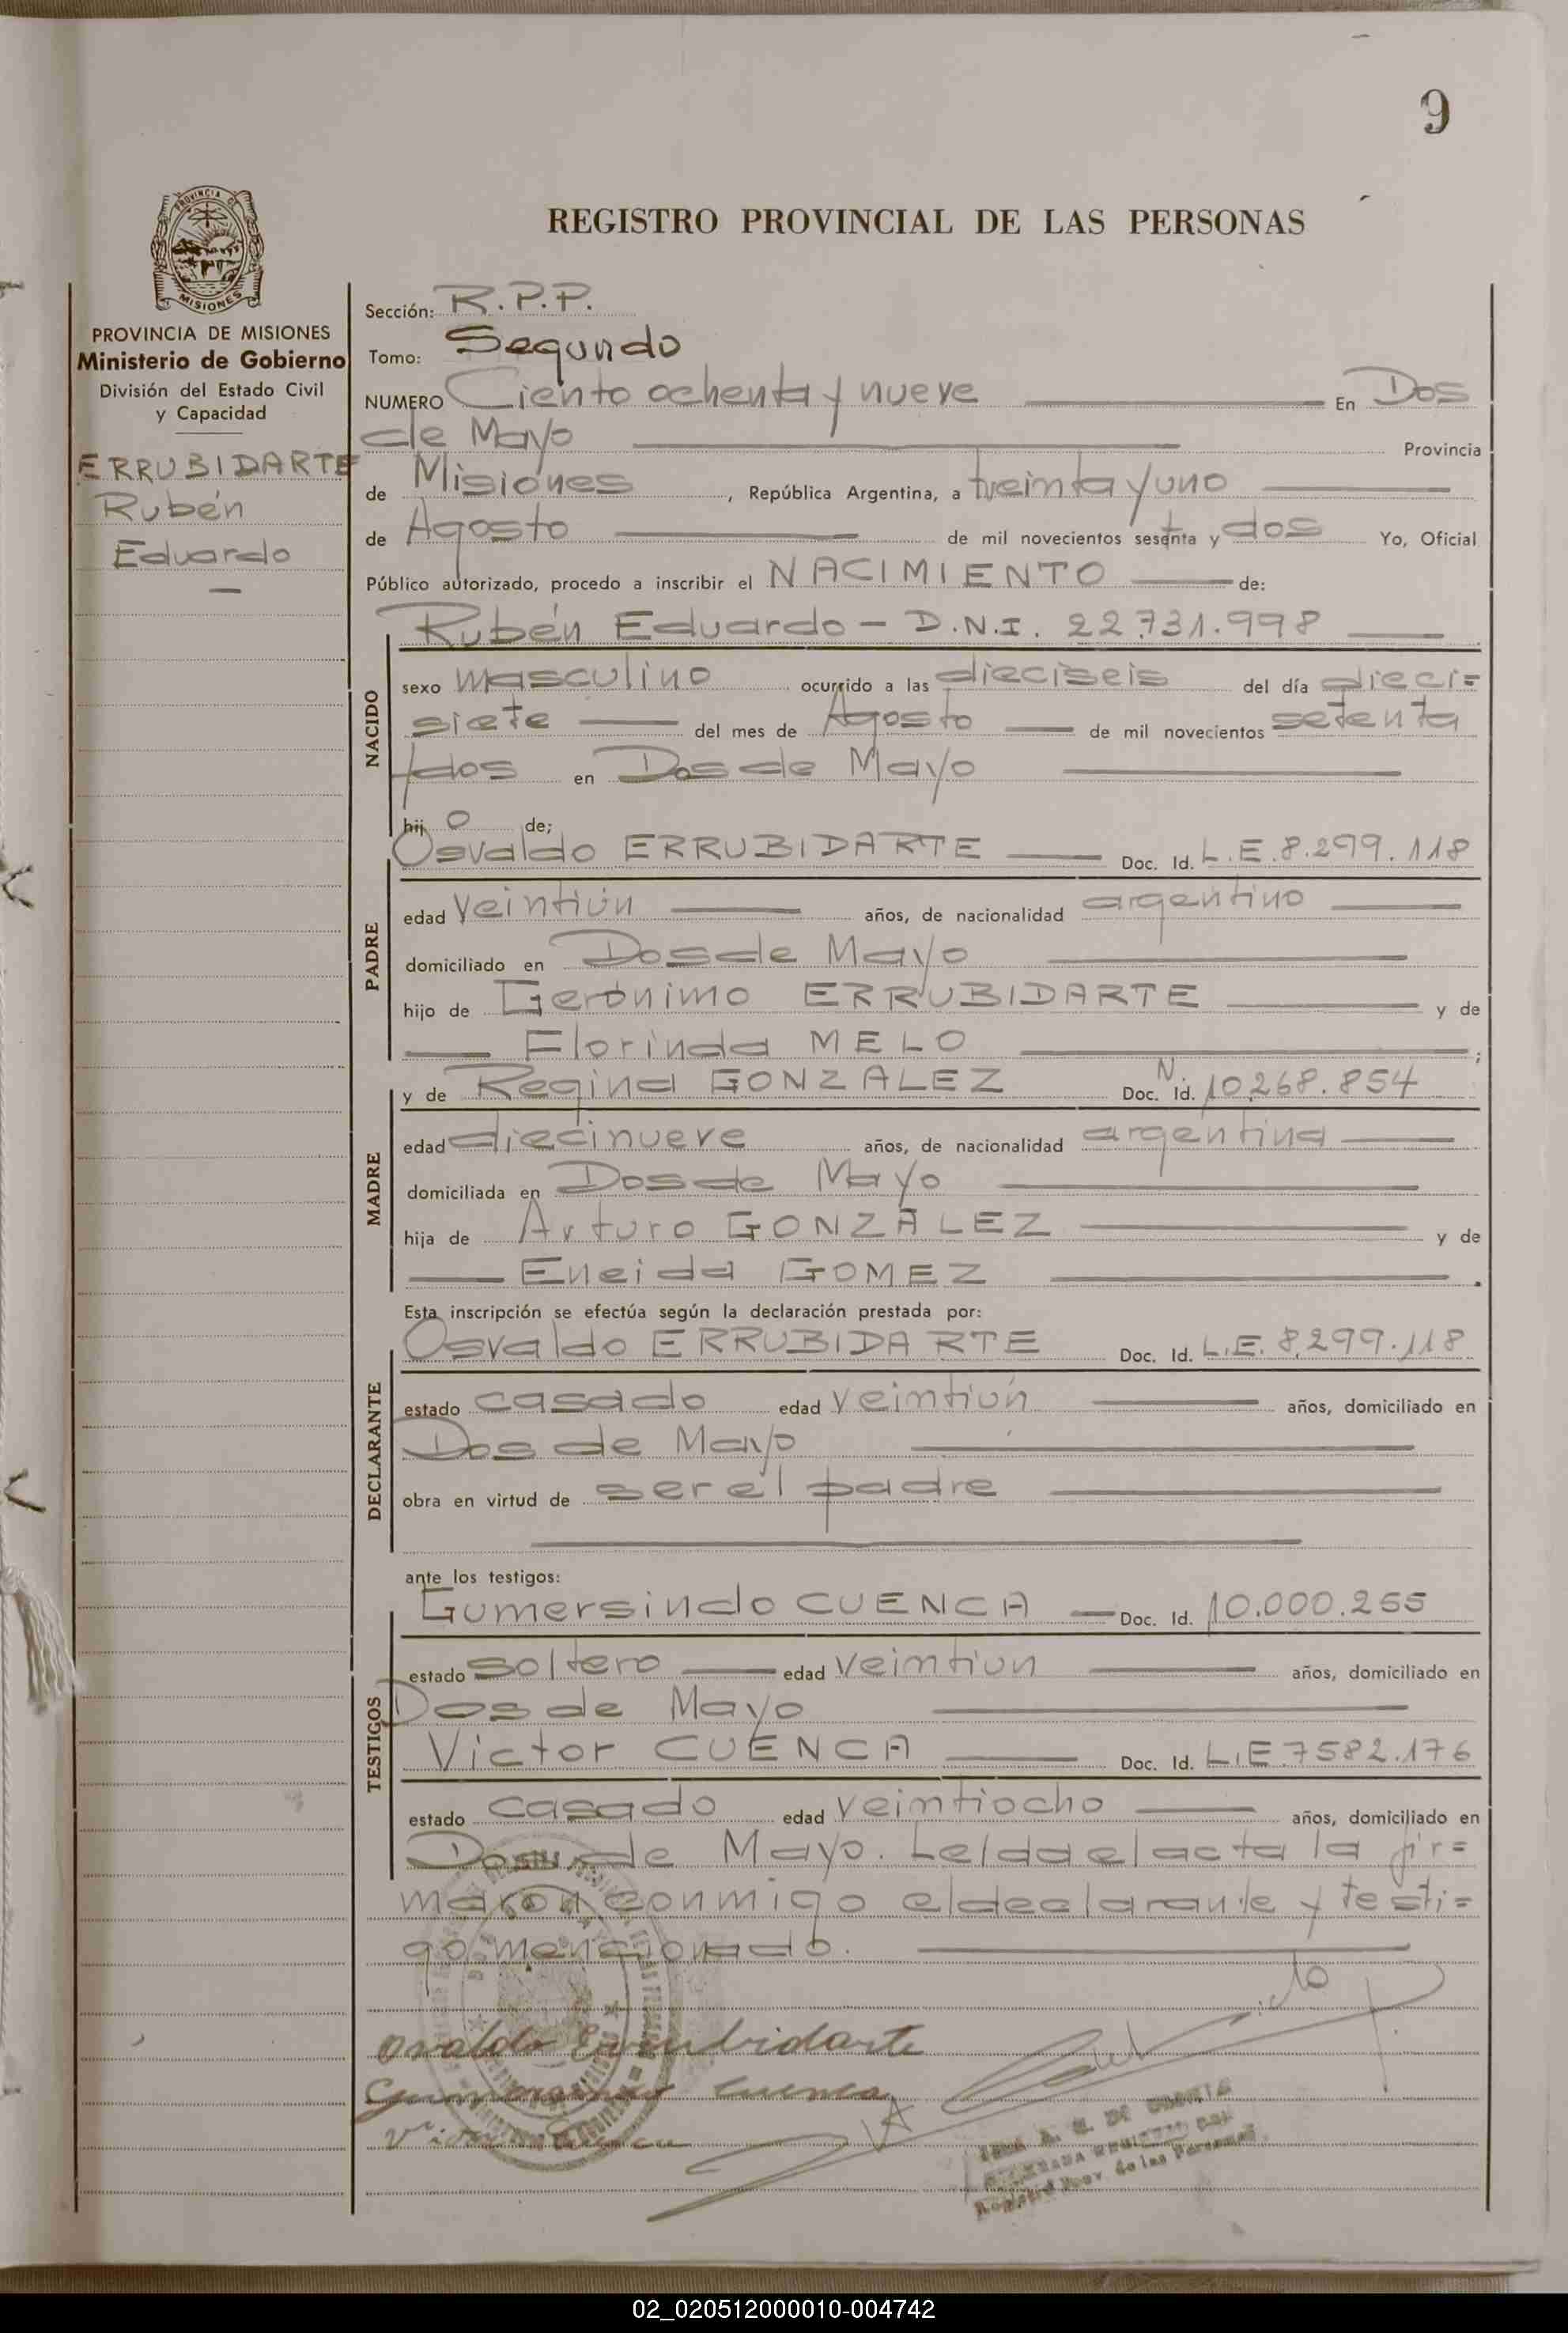 9
PROVINCIA DE
MISIONES
REGISTRO PROVINCIAL DE LAS PERSONAS
PROVINCIA DE MISIONES
Ministerio de Gobierno
División del Estado Civil
y Capacidad
ERRUBIDARTE
Rubén
Eduardo
Sección: R.P.P.
Tomo: Segundo
NUMERO Ciento ochenta y nueve En Dos
de Mayo Provincia
de Misiones, República Argentina, a treinta y uno
de Agosto de mil novecientos sesenta y dos Yo, Oficial
Público autorizado, procedo a inscribir el NACIMIENTO de:
Rubén Eduardo - D.N.I. 22.731.998
NACIDO
sexo masculino ocurrido a las dieciseis del día dieci=
siete del mes de Agosto de mil novecientos setenta
y dos en Dos de Mayo
hijo de;
Osvaldo ERRUBIDARTE Doc. Id. L.E. 8.299.118
PADRE
edad veintiún años, de nacionalidad argentino
domiciliado en Dos de Mayo
hijo de Gerónimo ERRUBIDARTE y de
Florinda MELO ;
y de Regina GONZALEZ Doc. N. Id. 10.268.854
MADRE
edad diecinueve años, de nacionalidad argentina
domiciliada en Dos de Mayo
hija de Arturo GONZÁLEZ y de
Eneida GOMEZ .
Esta inscripción se efectúa según la declaración prestada por:
Osvaldo ERRUBIDARTE Doc. Id. L.E. 8.299.118
DECLARANTE
estado casado edad veintiún años, domiciliado en
Dos de Mayo
obra en virtud de ser el padre
ante los testigos:
Gumersindo CUENCA Doc. Id. 10.000.255
TESTIGOS
estado soltero edad veintiun años, domiciliado en
Dos de Mayo
Victor CUENCA Doc. Id. L.E 7582.176
estado casado edad veintiocho años, domiciliado en
Dos de Mayo. Leída el acta la fir=
maron conmigo el declarante y testi=
go mencionado.
Osvaldo Errubidarte
Gumersindo Cuenca
Victor Cuenca
de las Personas
02_020512000010-004742